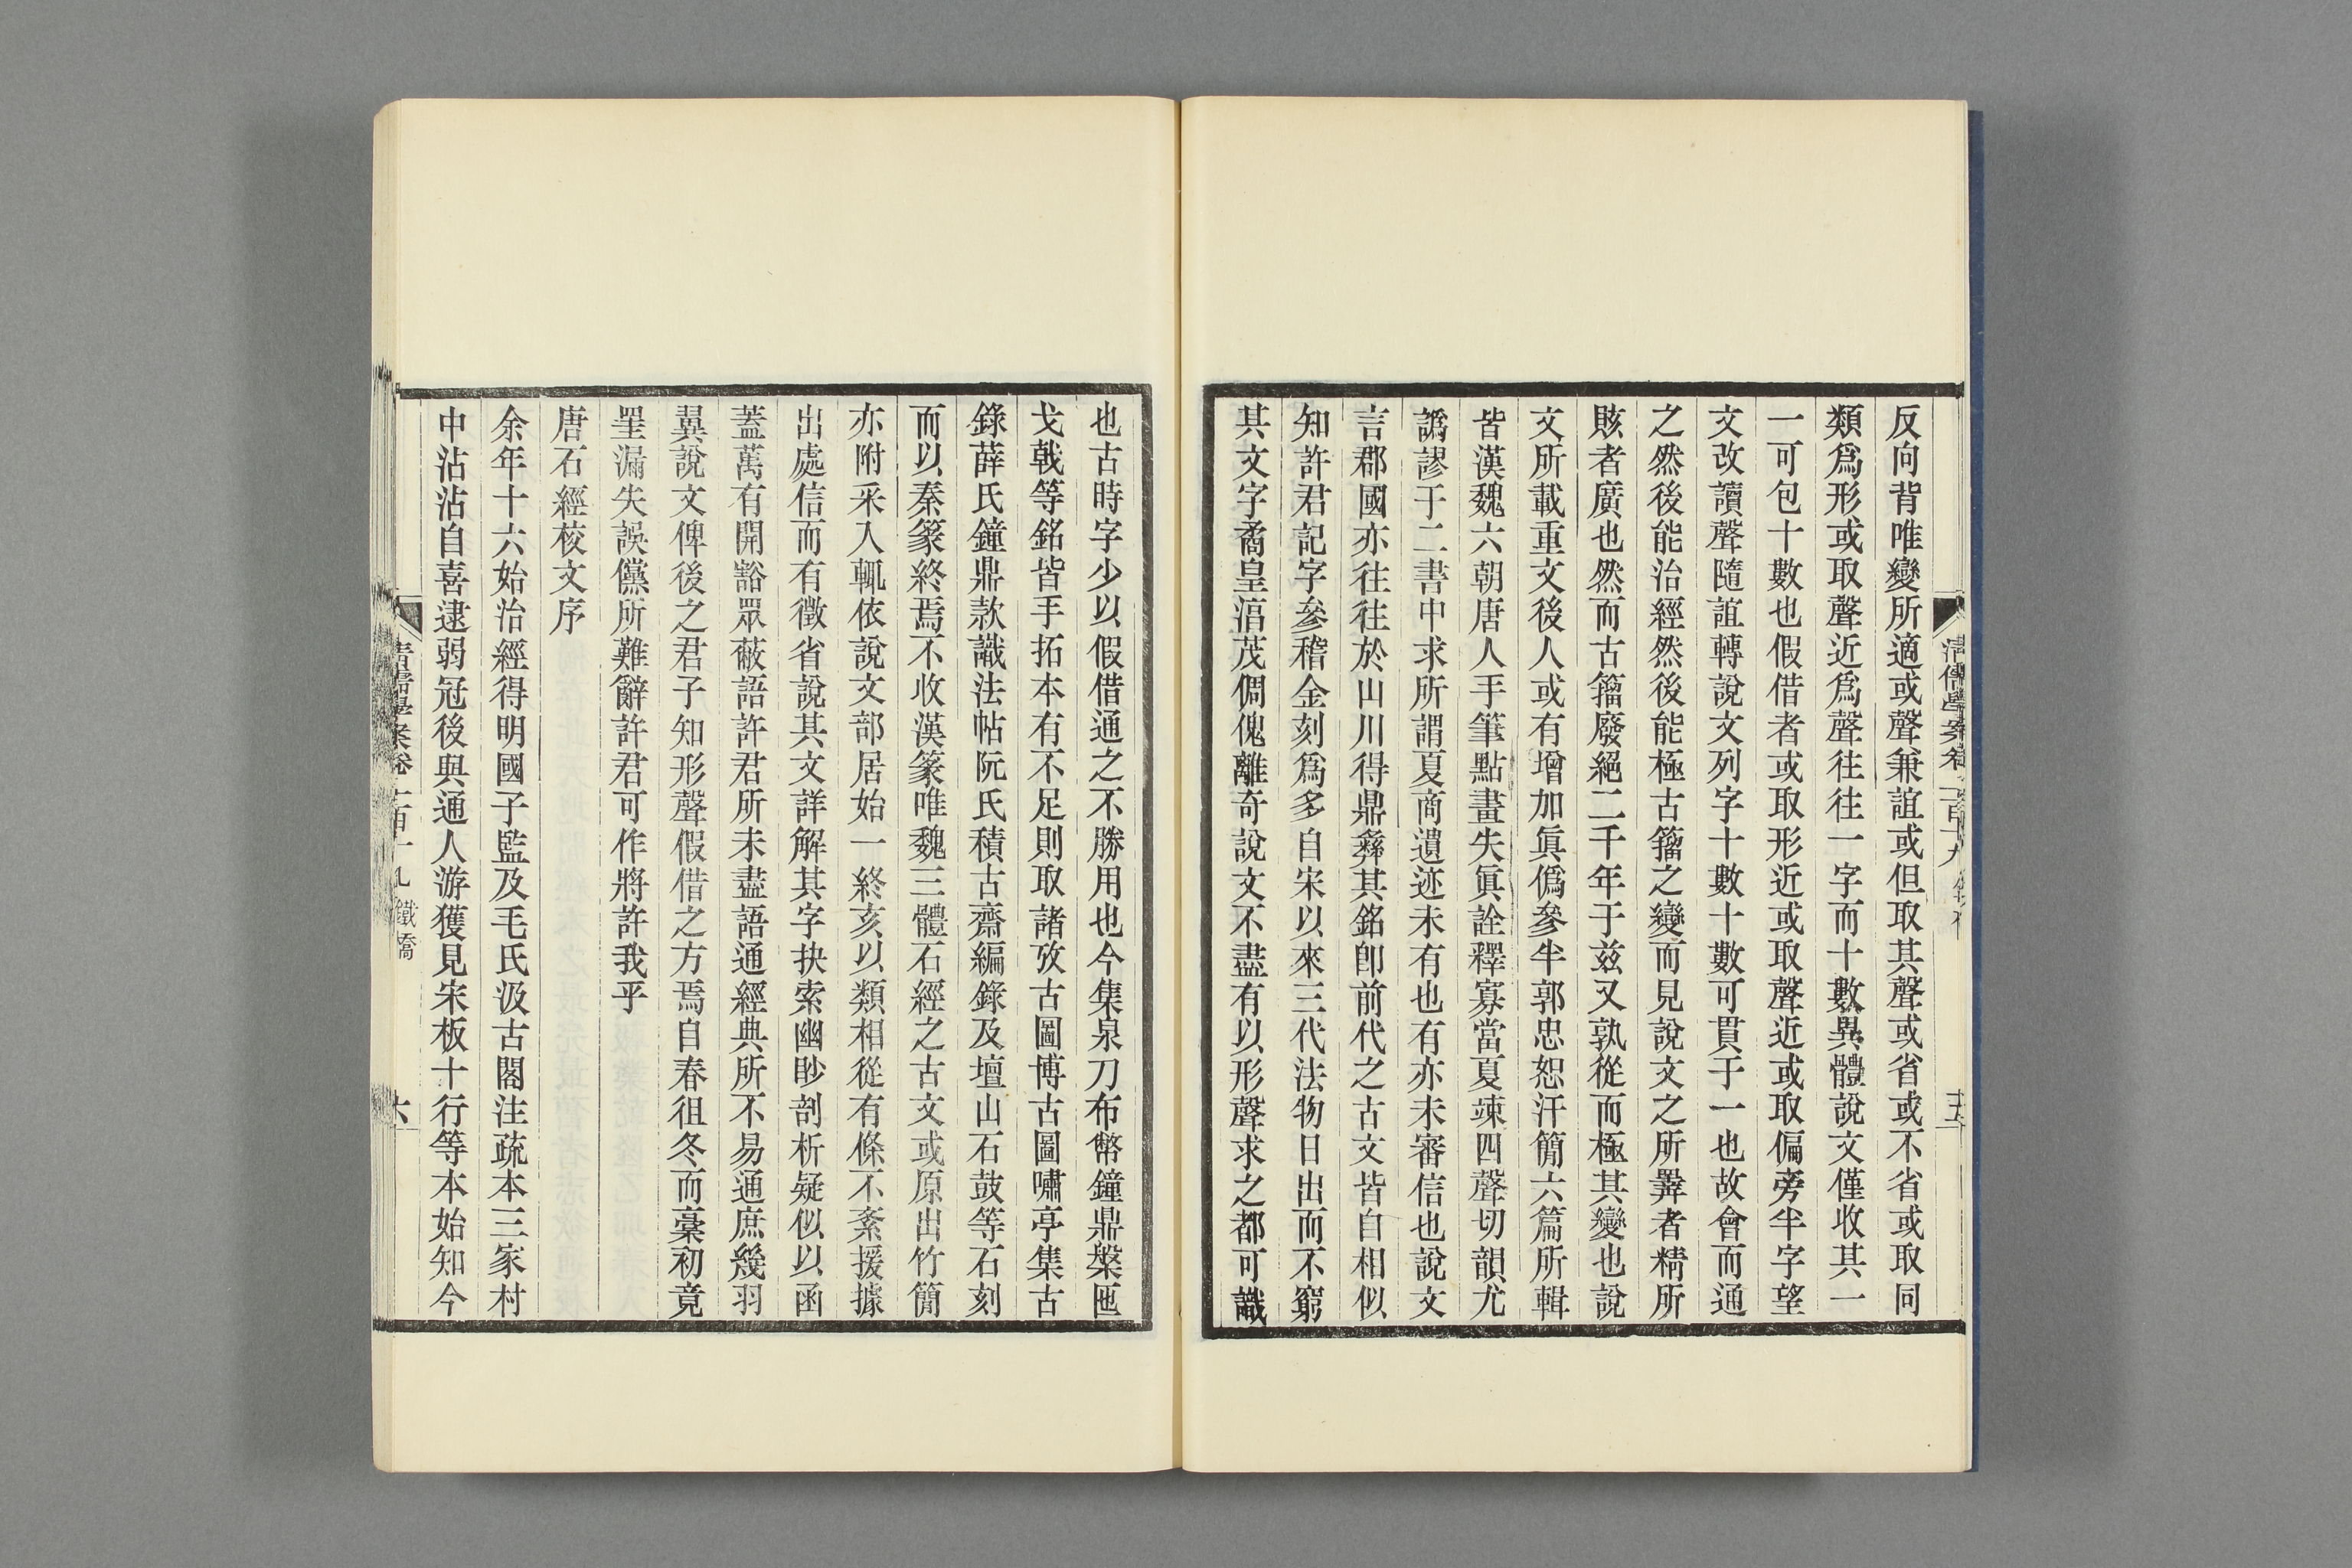 反向背唯變所適或聲兼誼或但取其聲或省或不省或取同
類爲形或取聲近爲聲往往一字而十數異體說文僅收其一
一可包十數也假借者或取形近或取聲近或取偏旁半字望
文改讀聲隨誼轉說文列字十數十數可貫于一也故會而通
之然後能治經然後能極古籀之變而見說文之所羴者精所
賅者廣也然而古籀廢絕二千年于兹又孰從而極其變也說
文所載重文後人或有增加眞僞參半郭忠恕汗簡六篇所輯
皆漢魏六朝唐人手筆點畫失眞詮釋寡當夏竦四聲切韻尤
譌謬于二書中求所謂夏商遺迹未有也有亦未審信也說文
言郡國亦往往於山川得鼎彝其銘卽前代之古文皆自相似
知許君記字參稽金刻爲多自宋以來三代法物日出而不窮
其文字矞皇渞茂倜傀離奇說文不盡有以形聲求之都可識
也古時字少以假借通之不勝用也今集泉刀布幣鐘鼎槃匜
戈戟等銘皆手拓本有不足則取諸攷古圖博古圖嘯亭集古
錄薛氏鐘鼎款識法帖阮氏積古齋編錄及壇山石鼓等石刻
而以秦篆終焉不收漢篆唯魏三體石經之古文或原出竹簡
亦附采入輒依說文部居始一終亥以類相從有條不紊援據
出處信而有徵省說其文詳解其字抉索幽眇剖析疑似以函
蓋萬有開豁眾蔽語許君所未盡語通經典所不易通庶幾羽
翼說文俾後之君子知形聲假借之方焉自春徂冬而藁初竟
罣漏失誤儻所難辭許君可作將許我乎
唐石經校文序
余年十六始治經得明國子監及毛氏汲古閣注疏本三家村
中沾沾自喜逮弱冠後與通人游獲見宋板十行等本始知今
清儒學案卷一百十九 鐵橋
六